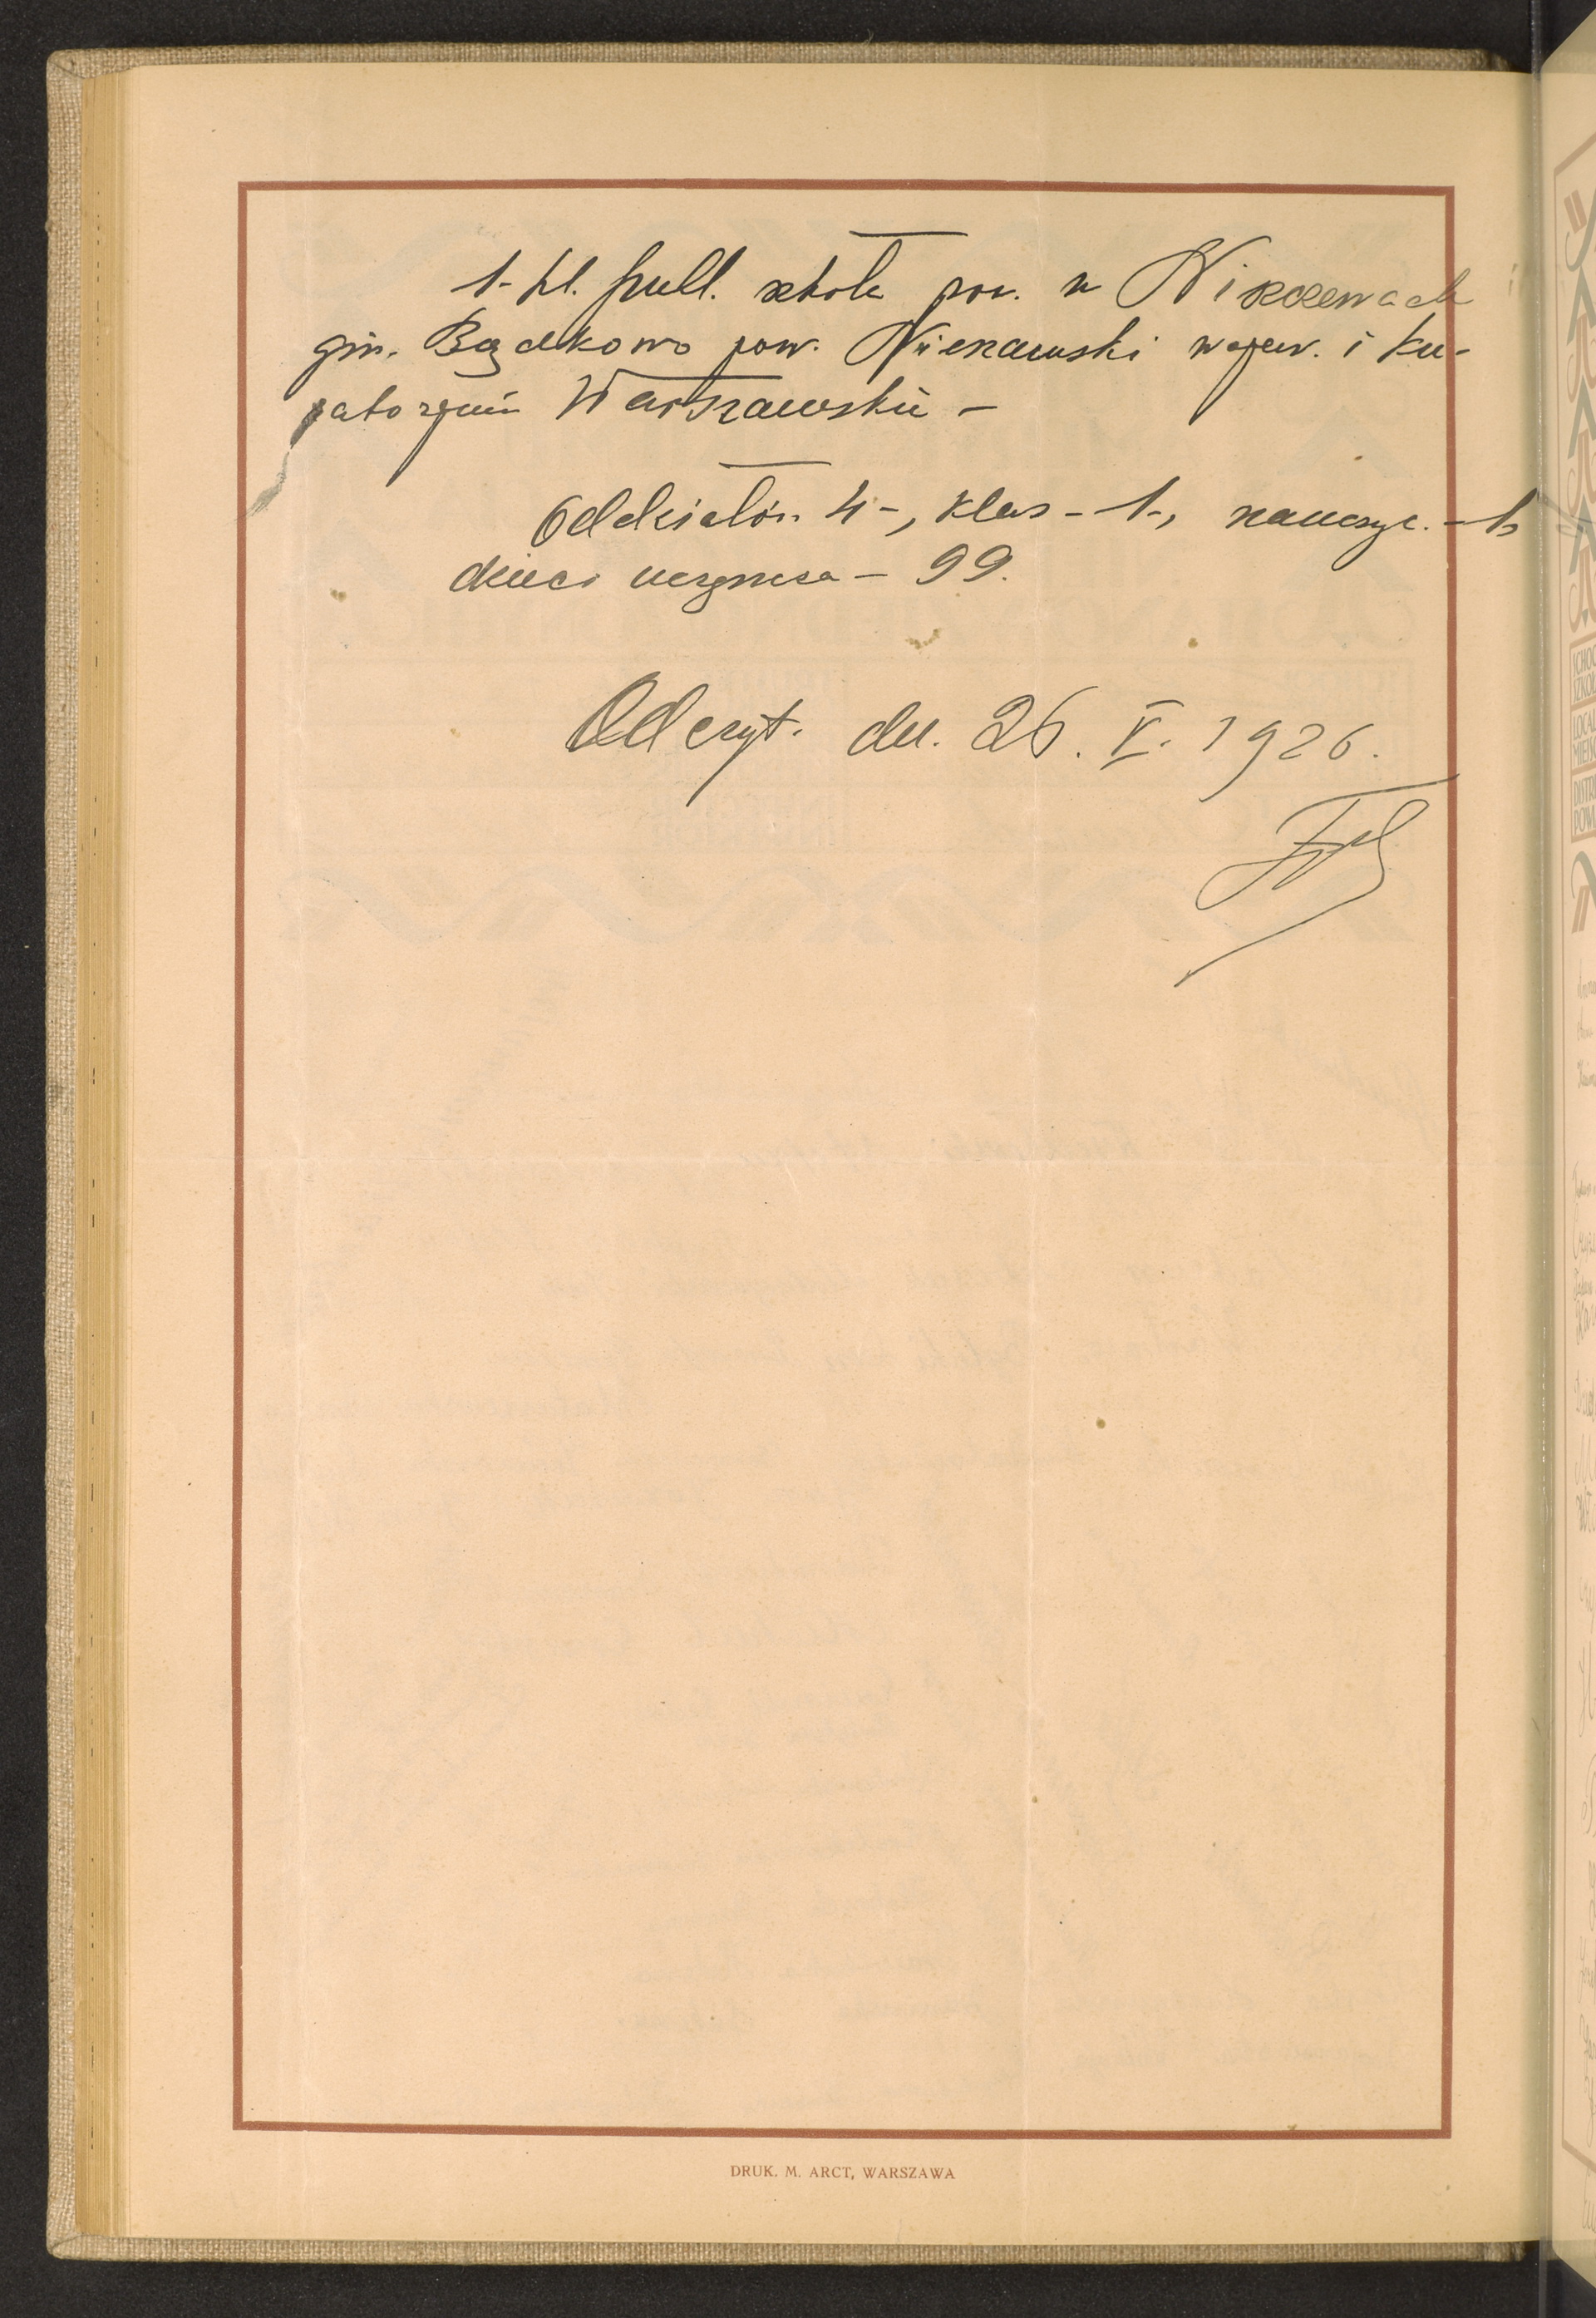 1-kl. publ. szkoła pow. w Niszczewach
gm. Bądkowo pow. Nieszawski wojew. i Ku-
ratorjum Warszawskie –
Oddziałów 4-, klas - 1-, nauczyc. - 1,
dzieci uczęszcza – 99.
Odczyt. dn. 26. V. 1926.
DRUK. M. ARCT, WARSZAWA